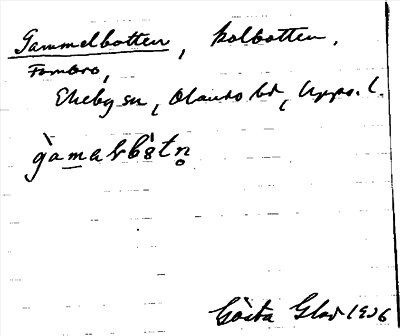 Gammelbotten, kolbotten.
Fombro,
Ekeby sn, Olands hd, Upps. l.
gàmalbòtn̥
Gösta Glad 1926